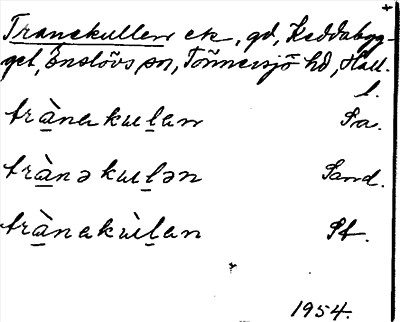 Tranekullen ck, gd, Keddabygg-
get, Enslövs sn, Tönnersjö hd, Hall.
l.
trànakulan Sa.
trànəkulən Sand.
trànakùlan St.
1954.